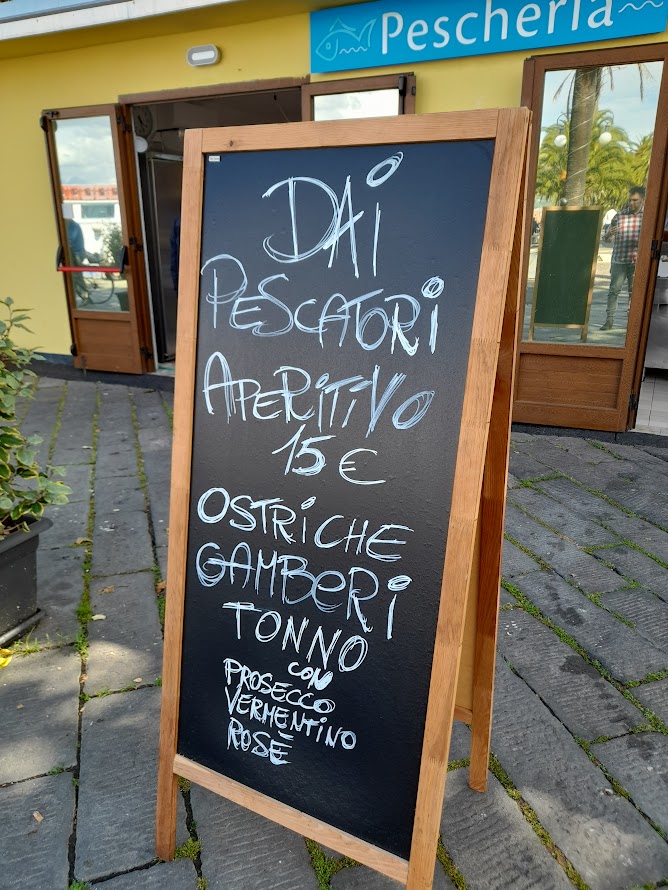 Pescheria
DAi
PESCATORi
APERiTiVO
15 €
OSTRiCHE
GAMBERi
TONNO
CON
PROSECCO
VERMENTINO
ROSÉ